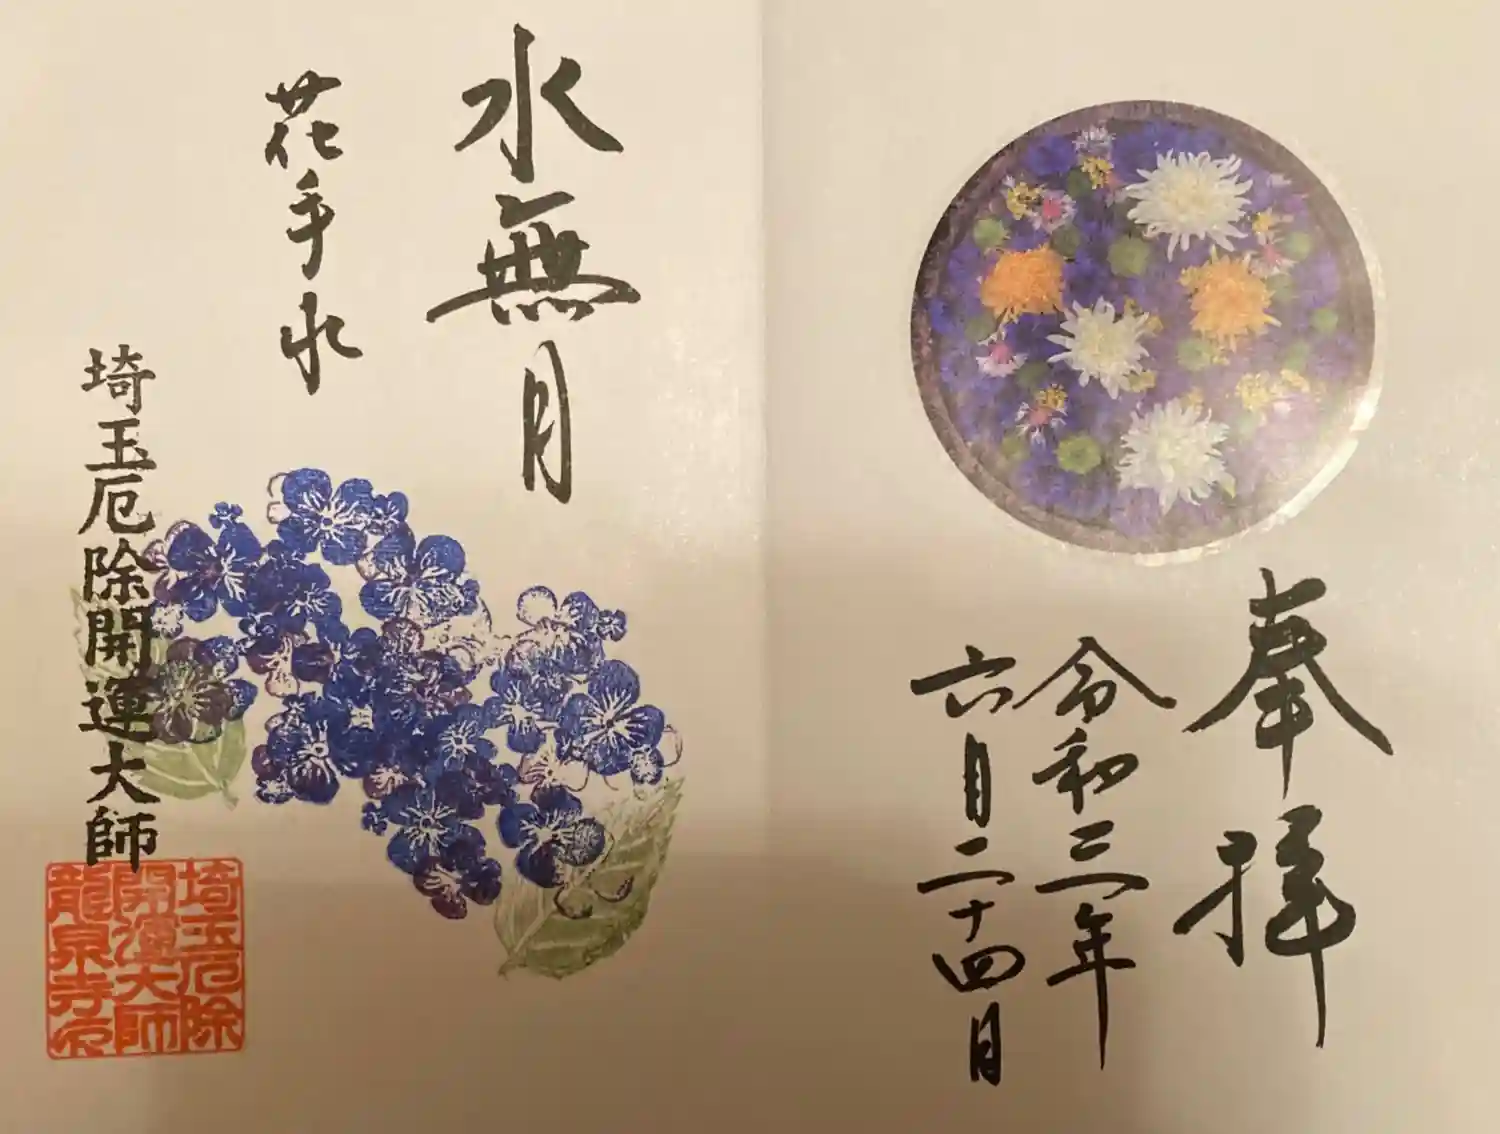 奉拝
令和三年
六月二十四日
水無月
花手水
埼玉厄除開運大師
埼玉厄除
開運大師
龍泉寺印